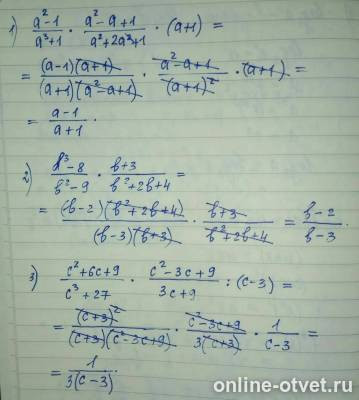 1) (a²-1)/(a³+1) · (a²-a+1)/(a²+2a³+1) · (a+1) =
= ((a-1)(a+1))/((a+1)(a²-a+1)) · (a²-a+1)/(a+1)² · (a+1) =
= (a-1)/(a+1) .
2) (b³-8)/(b²-9) · (b+3)/(b²+2b+4) =
= ((b-2)(b²+2b+4))/((b-3)(b+3)) · (b+3)/(b²+2b+4) = (b-2)/(b-3) .
3) (c²+6c+9)/(c³+27) · (c²-3c+9)/(3c+9) : (c-3) =
= (c+3)²/((c+3)(c²-3c+9)) · (c²-3c+9)/(3(c+3)) · 1/(c-3) =
= 1/(3(c-3)) .
online-otvet.ru